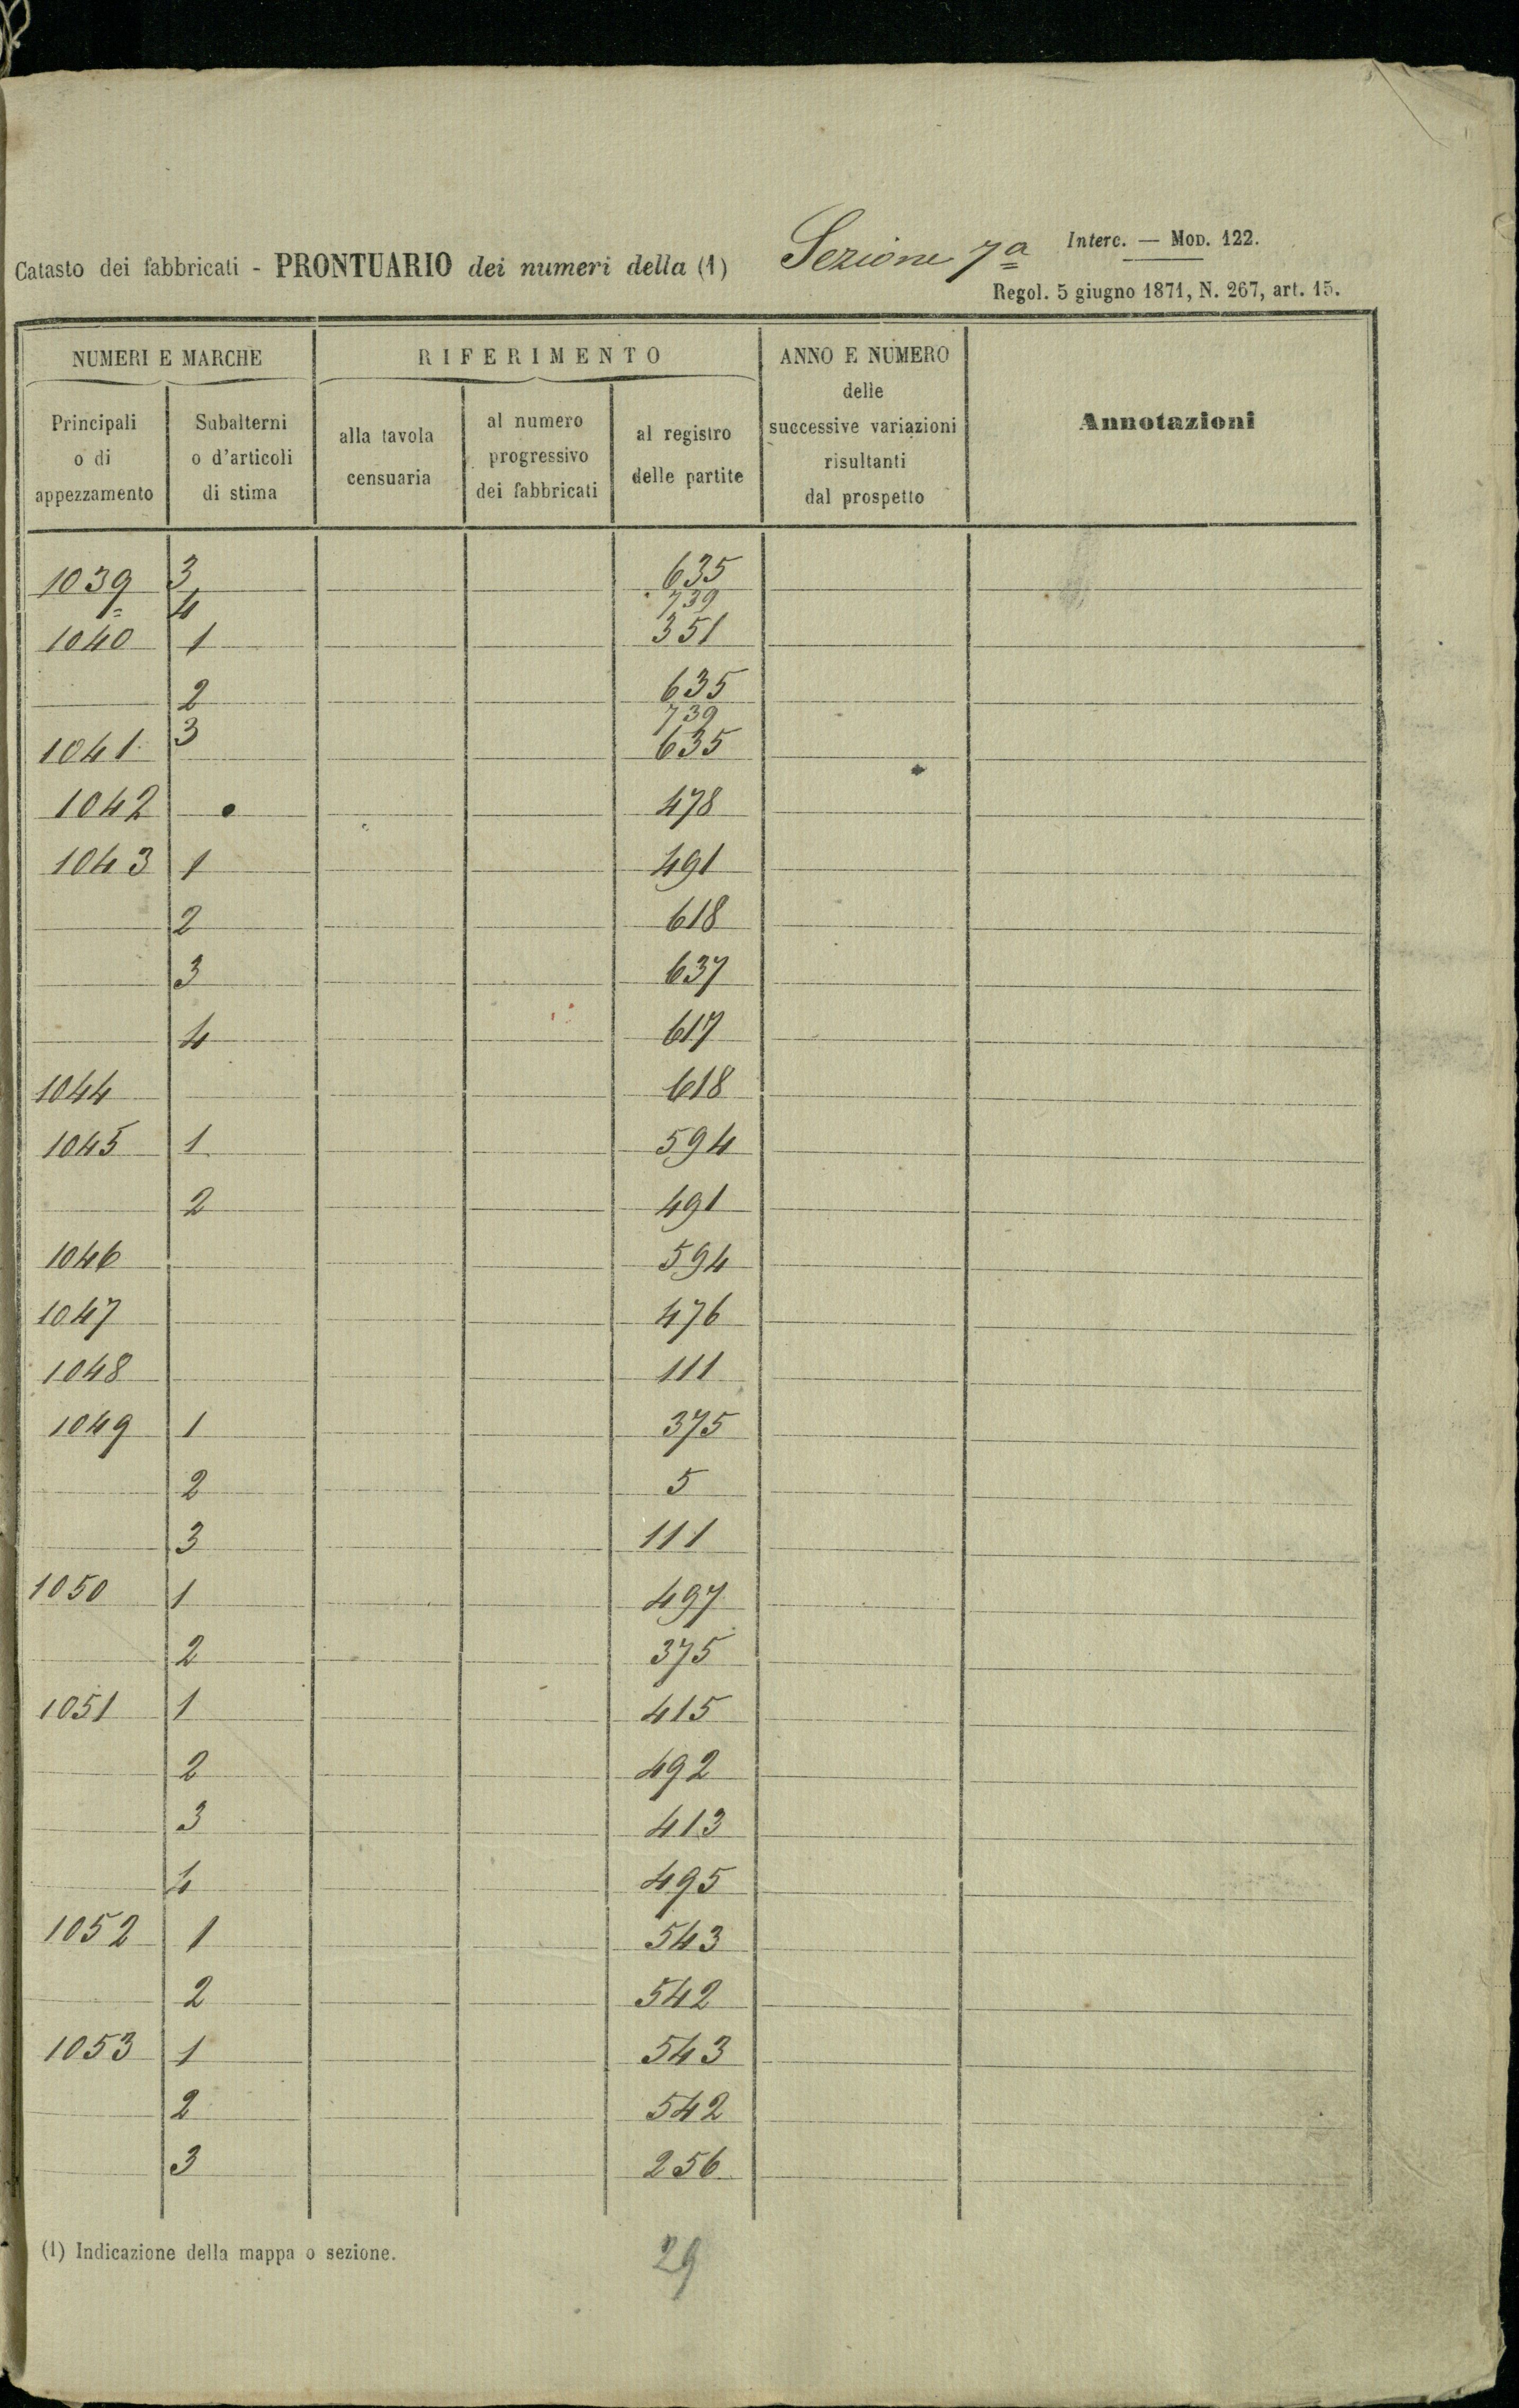 Catasto dei fabbricati - PRONTUARIO dei numeri della (1) Sezione 7ª
Interc. — MOD. 122.
Regol. 5 giugno 1871, N. 267, art. 15.
NUMERI E MARCHE
Principali o di appezzamento
Subalterni o d'articoli di stima
RIFERIMENTO
alla tavola censuaria
al numero progressivo dei fabbricati
al registro delle partite
ANNO E NUMERO delle successive variazioni risultanti dal prospetto
Annotazioni
1039 3 635
" 4 739
1040 1 351
2 635
3 739
1041 635
1042 478
1043 1 491
2 618
3 637
4 617
1044 618
1045 1 594
2 491
1046 594
1047 476
1048 111
1049 1 375
2 5
3 111
1050 1 497
2 375
1051 1 415
2 492
3 413
4 495
1052 1 543
2 542
1053 1 543
2 542
3 256
(1) Indicazione della mappa o sezione.
29